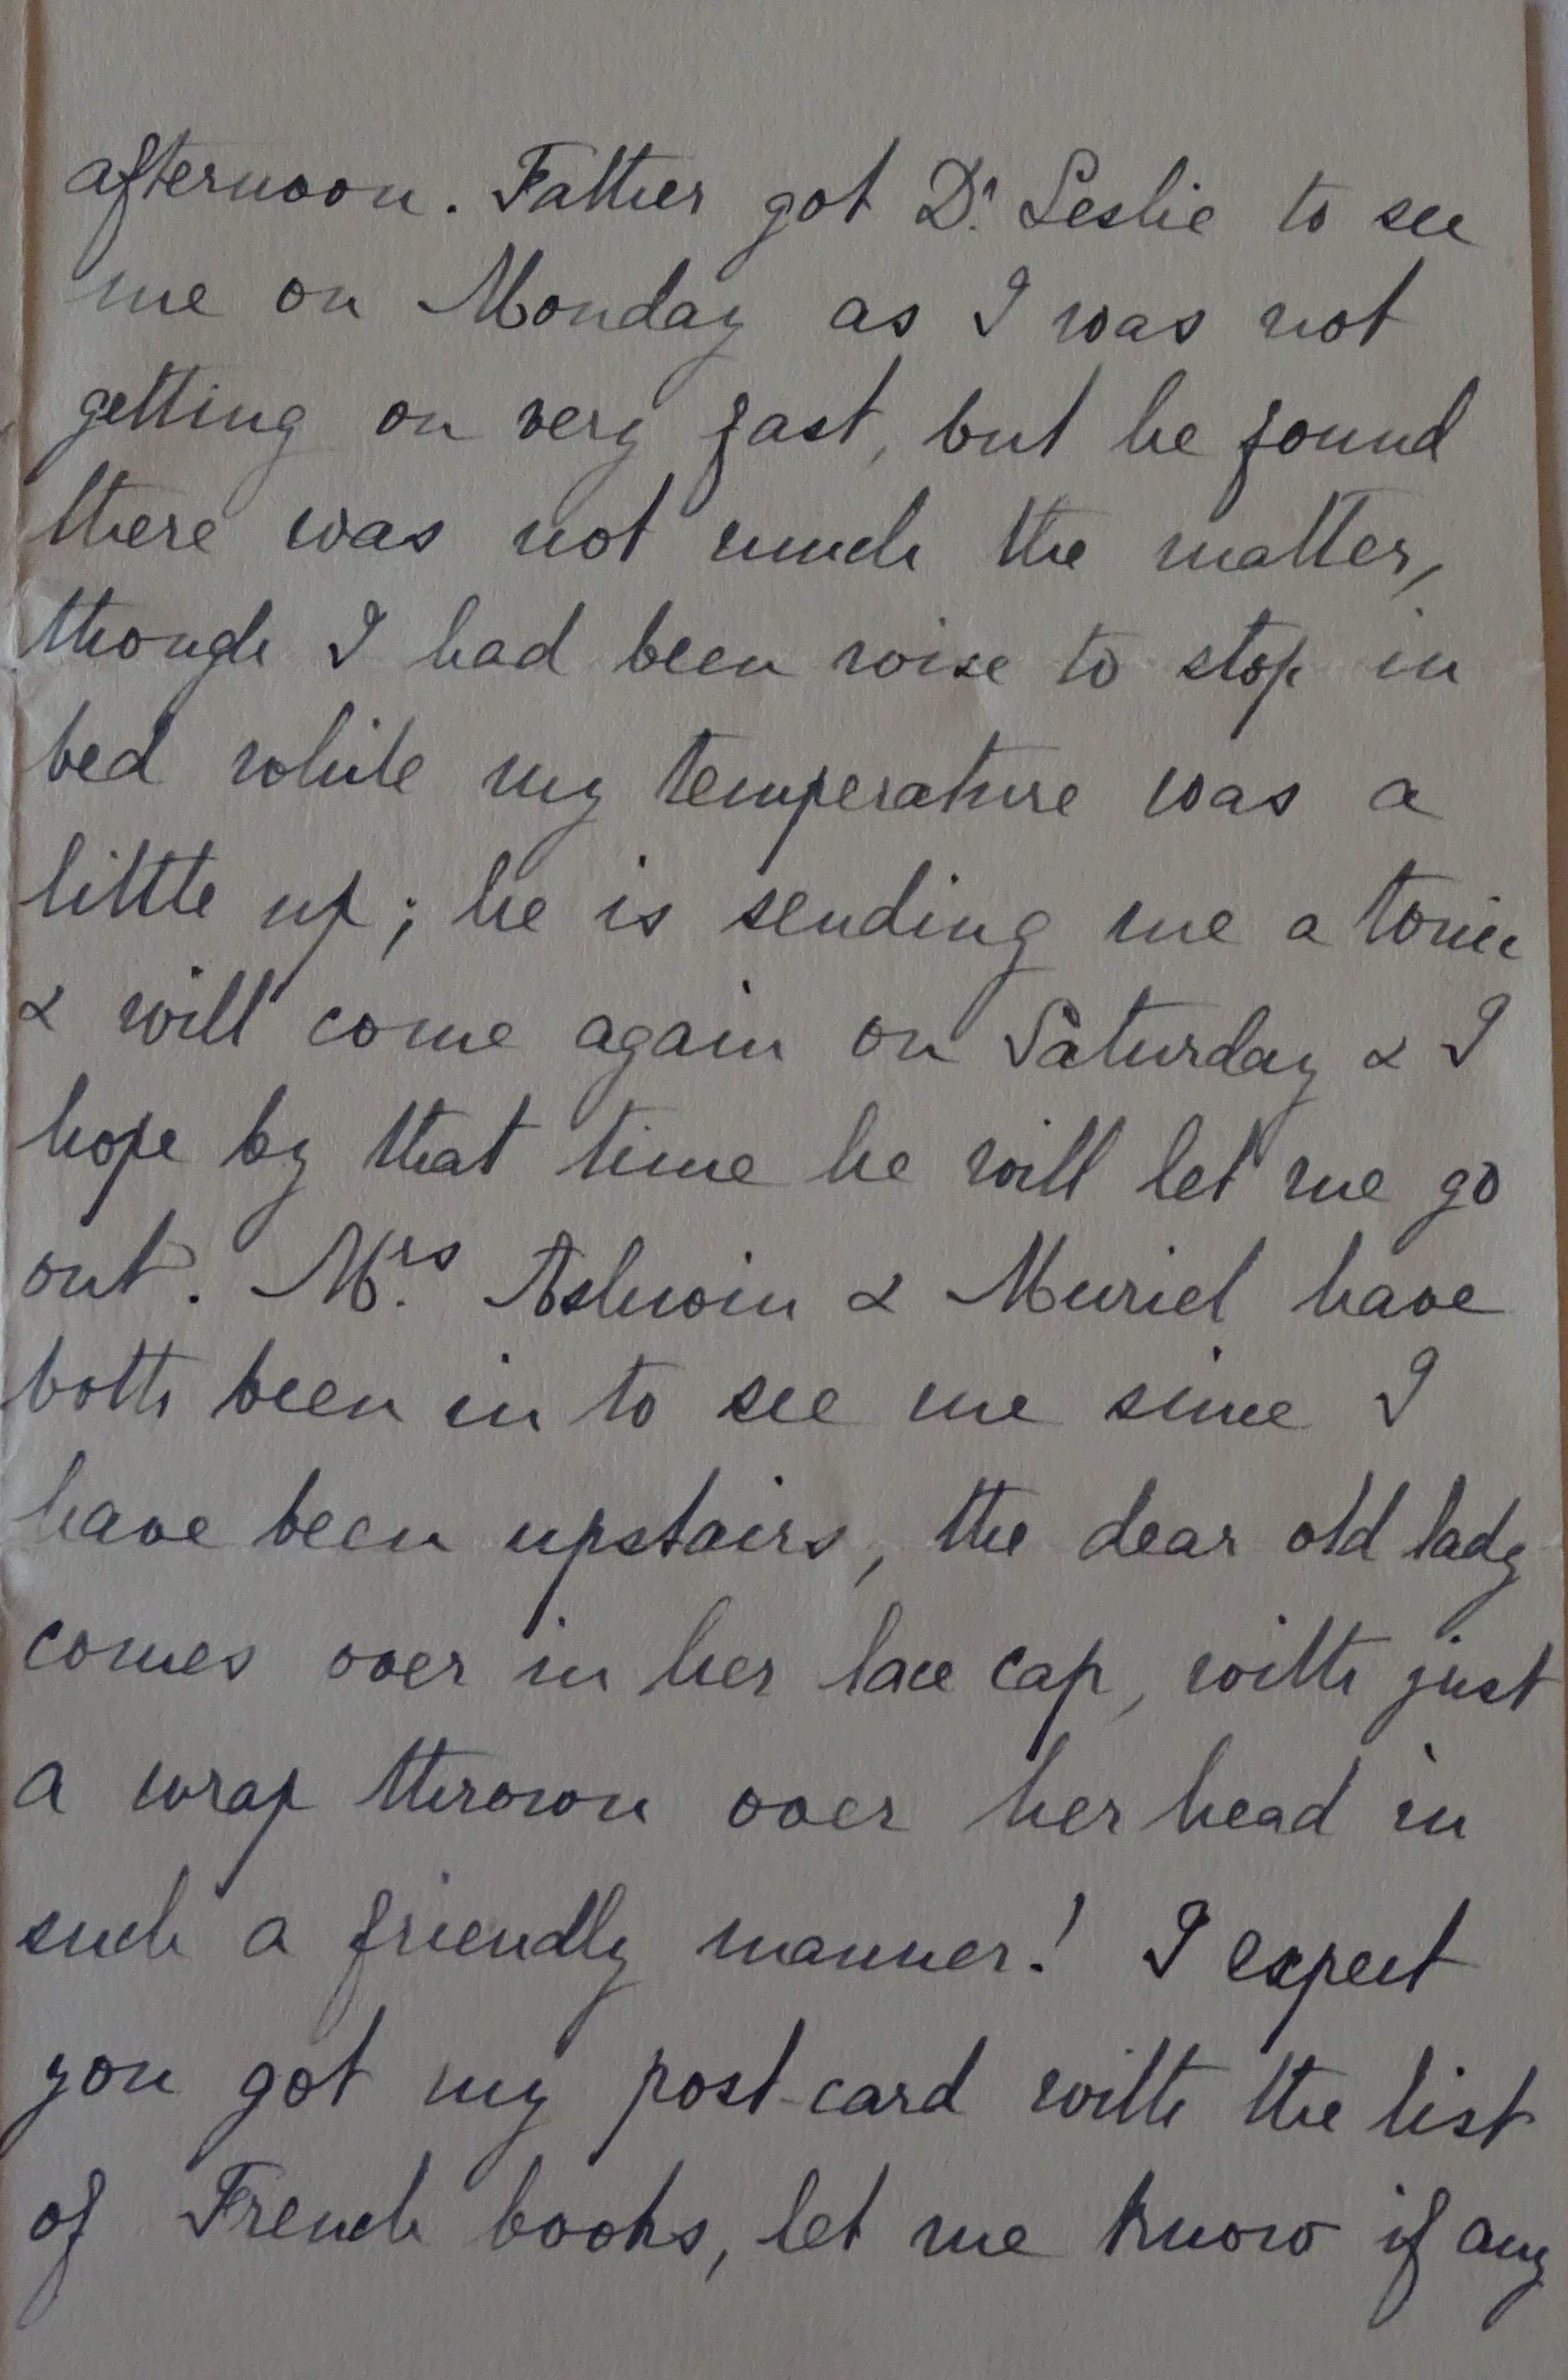 afternoon. Father got Dr. Leslie to see
me on Monday as I was not
getting on very fast, but he found
there was not much the matter,
though I had been wise to stop in
bed while my temperature was a
little up; he is sending me a tonic
& will come again on Saturday & I
hope by that time he will let me go
out. Mrs. Ashwin & Muriel have
both been in to see me since I
have been upstairs, the dear old lady
comes over in her lace cap, with just
a wrap thrown over her head in
such a friendly manner! I expect
you got my post-card with the list
of French books, let me know if any